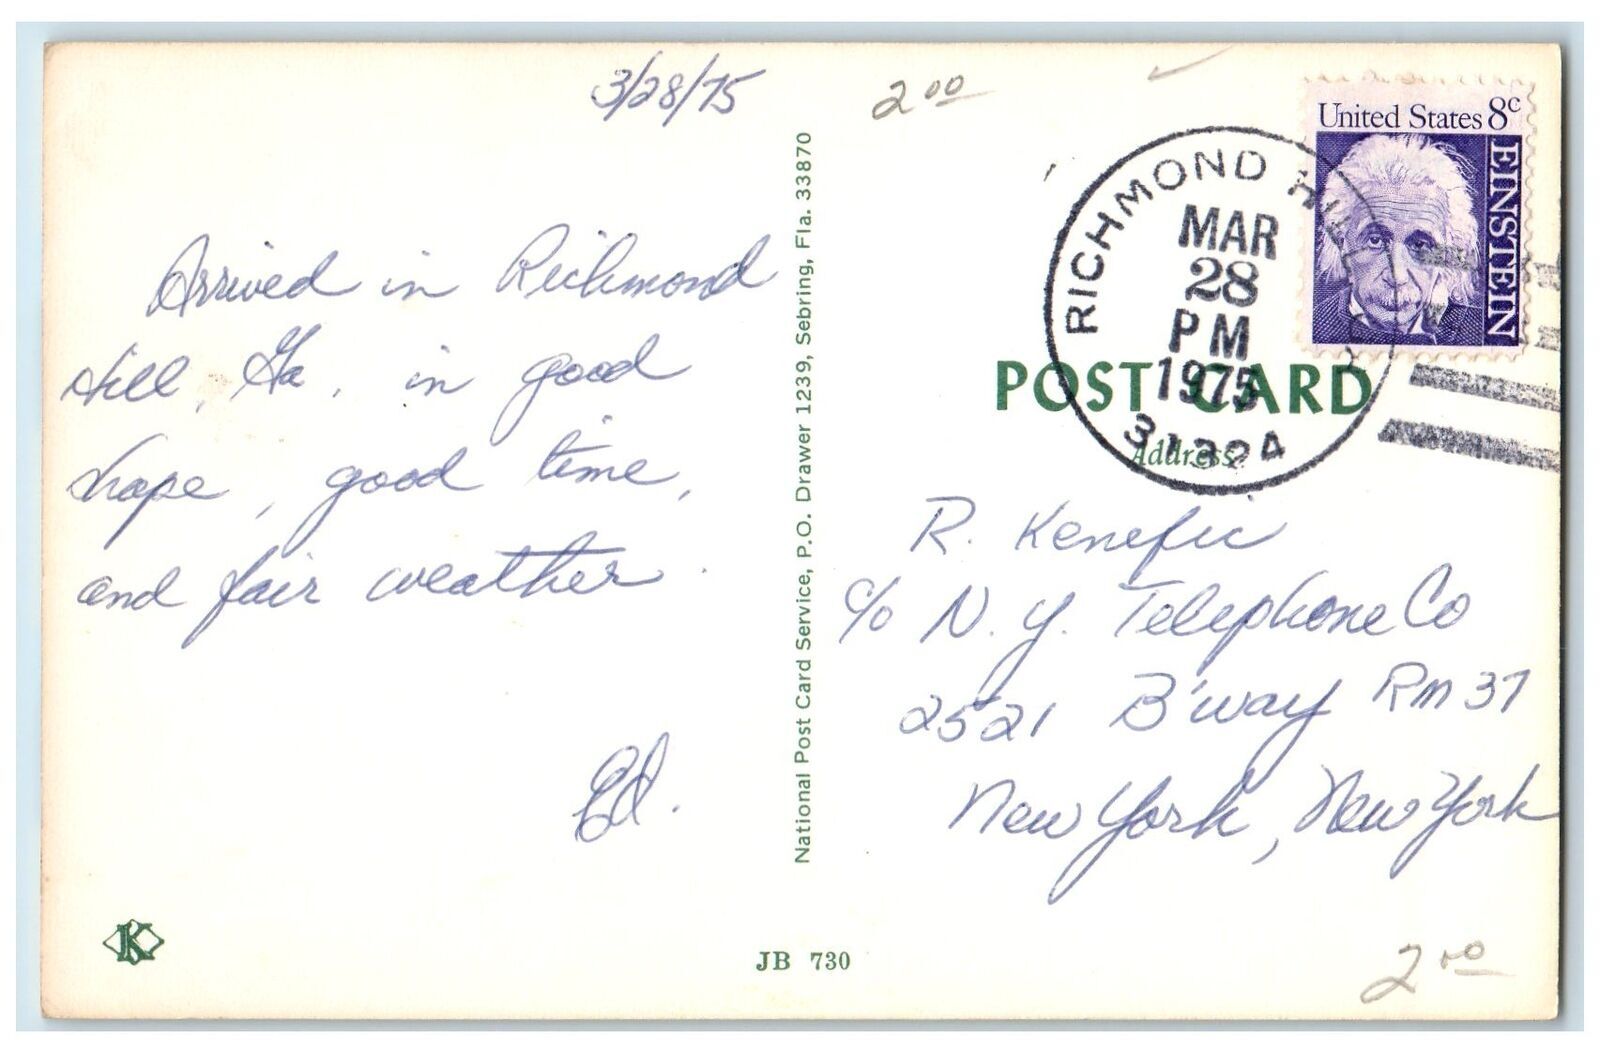 3/28/75
Arrived in Richmond
Hill, Ga, in good
shape, good time,
and fair weather.
Ed.
K
JB 730
National Post Card Service, P.O. Drawer 1239, Sebring, Fla. 33870
2 00
United States 8c
EINSTEIN
RICHMOND HILL
MAR
28
PM
1975
31324
POST CARD
Address
R. Kenefic
c/o N.Y. Telephone Co
2521 B'way Rm 37
New York, New York
2 00